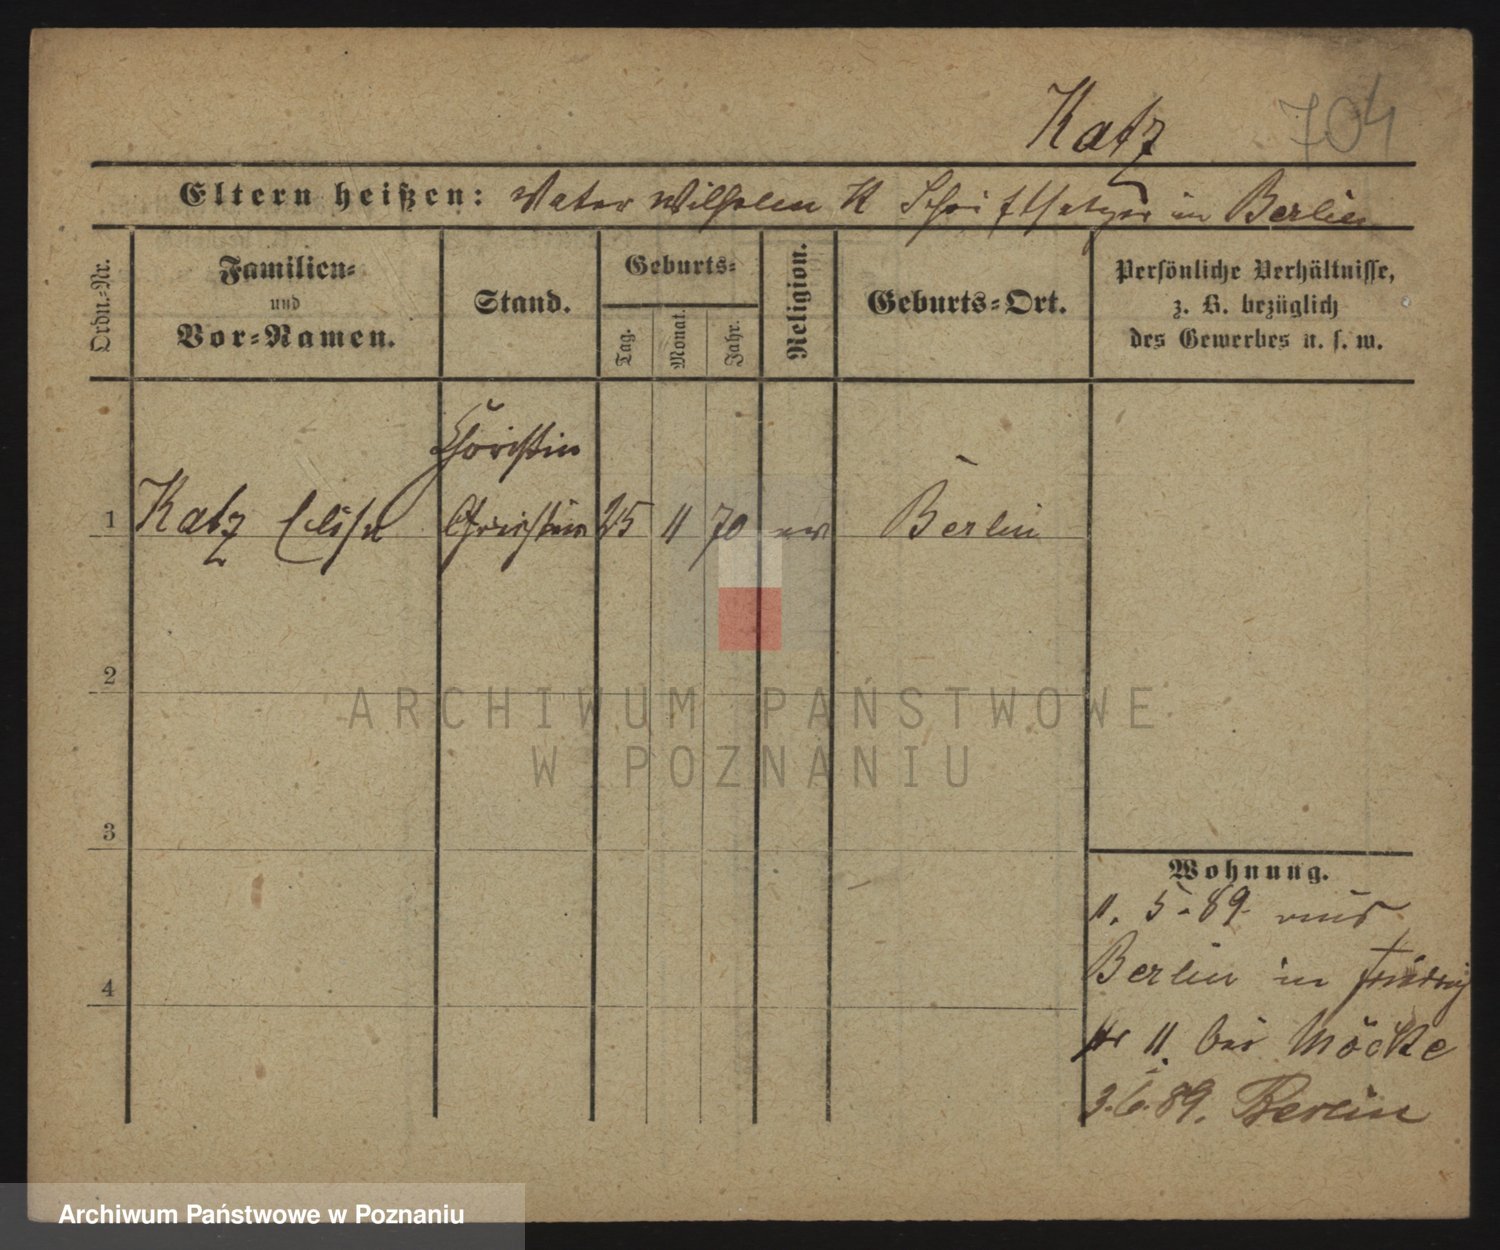 Katz 704
Eltern heißen: Vater Wilhelm K Schriftsetzer in Berlin
Ordn.-Nr.
Familien-
und
Vor-Namen.
Stand.
Geburts-
Tag.
Monat.
Jahr.
Religion.
Geburts-Ort.
Persönliche Verhältnisse,
z. B. bezüglich
des Gewerbes u. s. w.
Choristin
1 Katz Elise 25 11 70 ev Berlin
2
3
4
Wohnung.
11. 5. 89. aus
Berlin in
str 11. bei Möcke
3.6.89. Berlin
ARCHIWUM PAŃSTWOWE
W POZNANIU
Archiwum Państwowe w Poznaniu